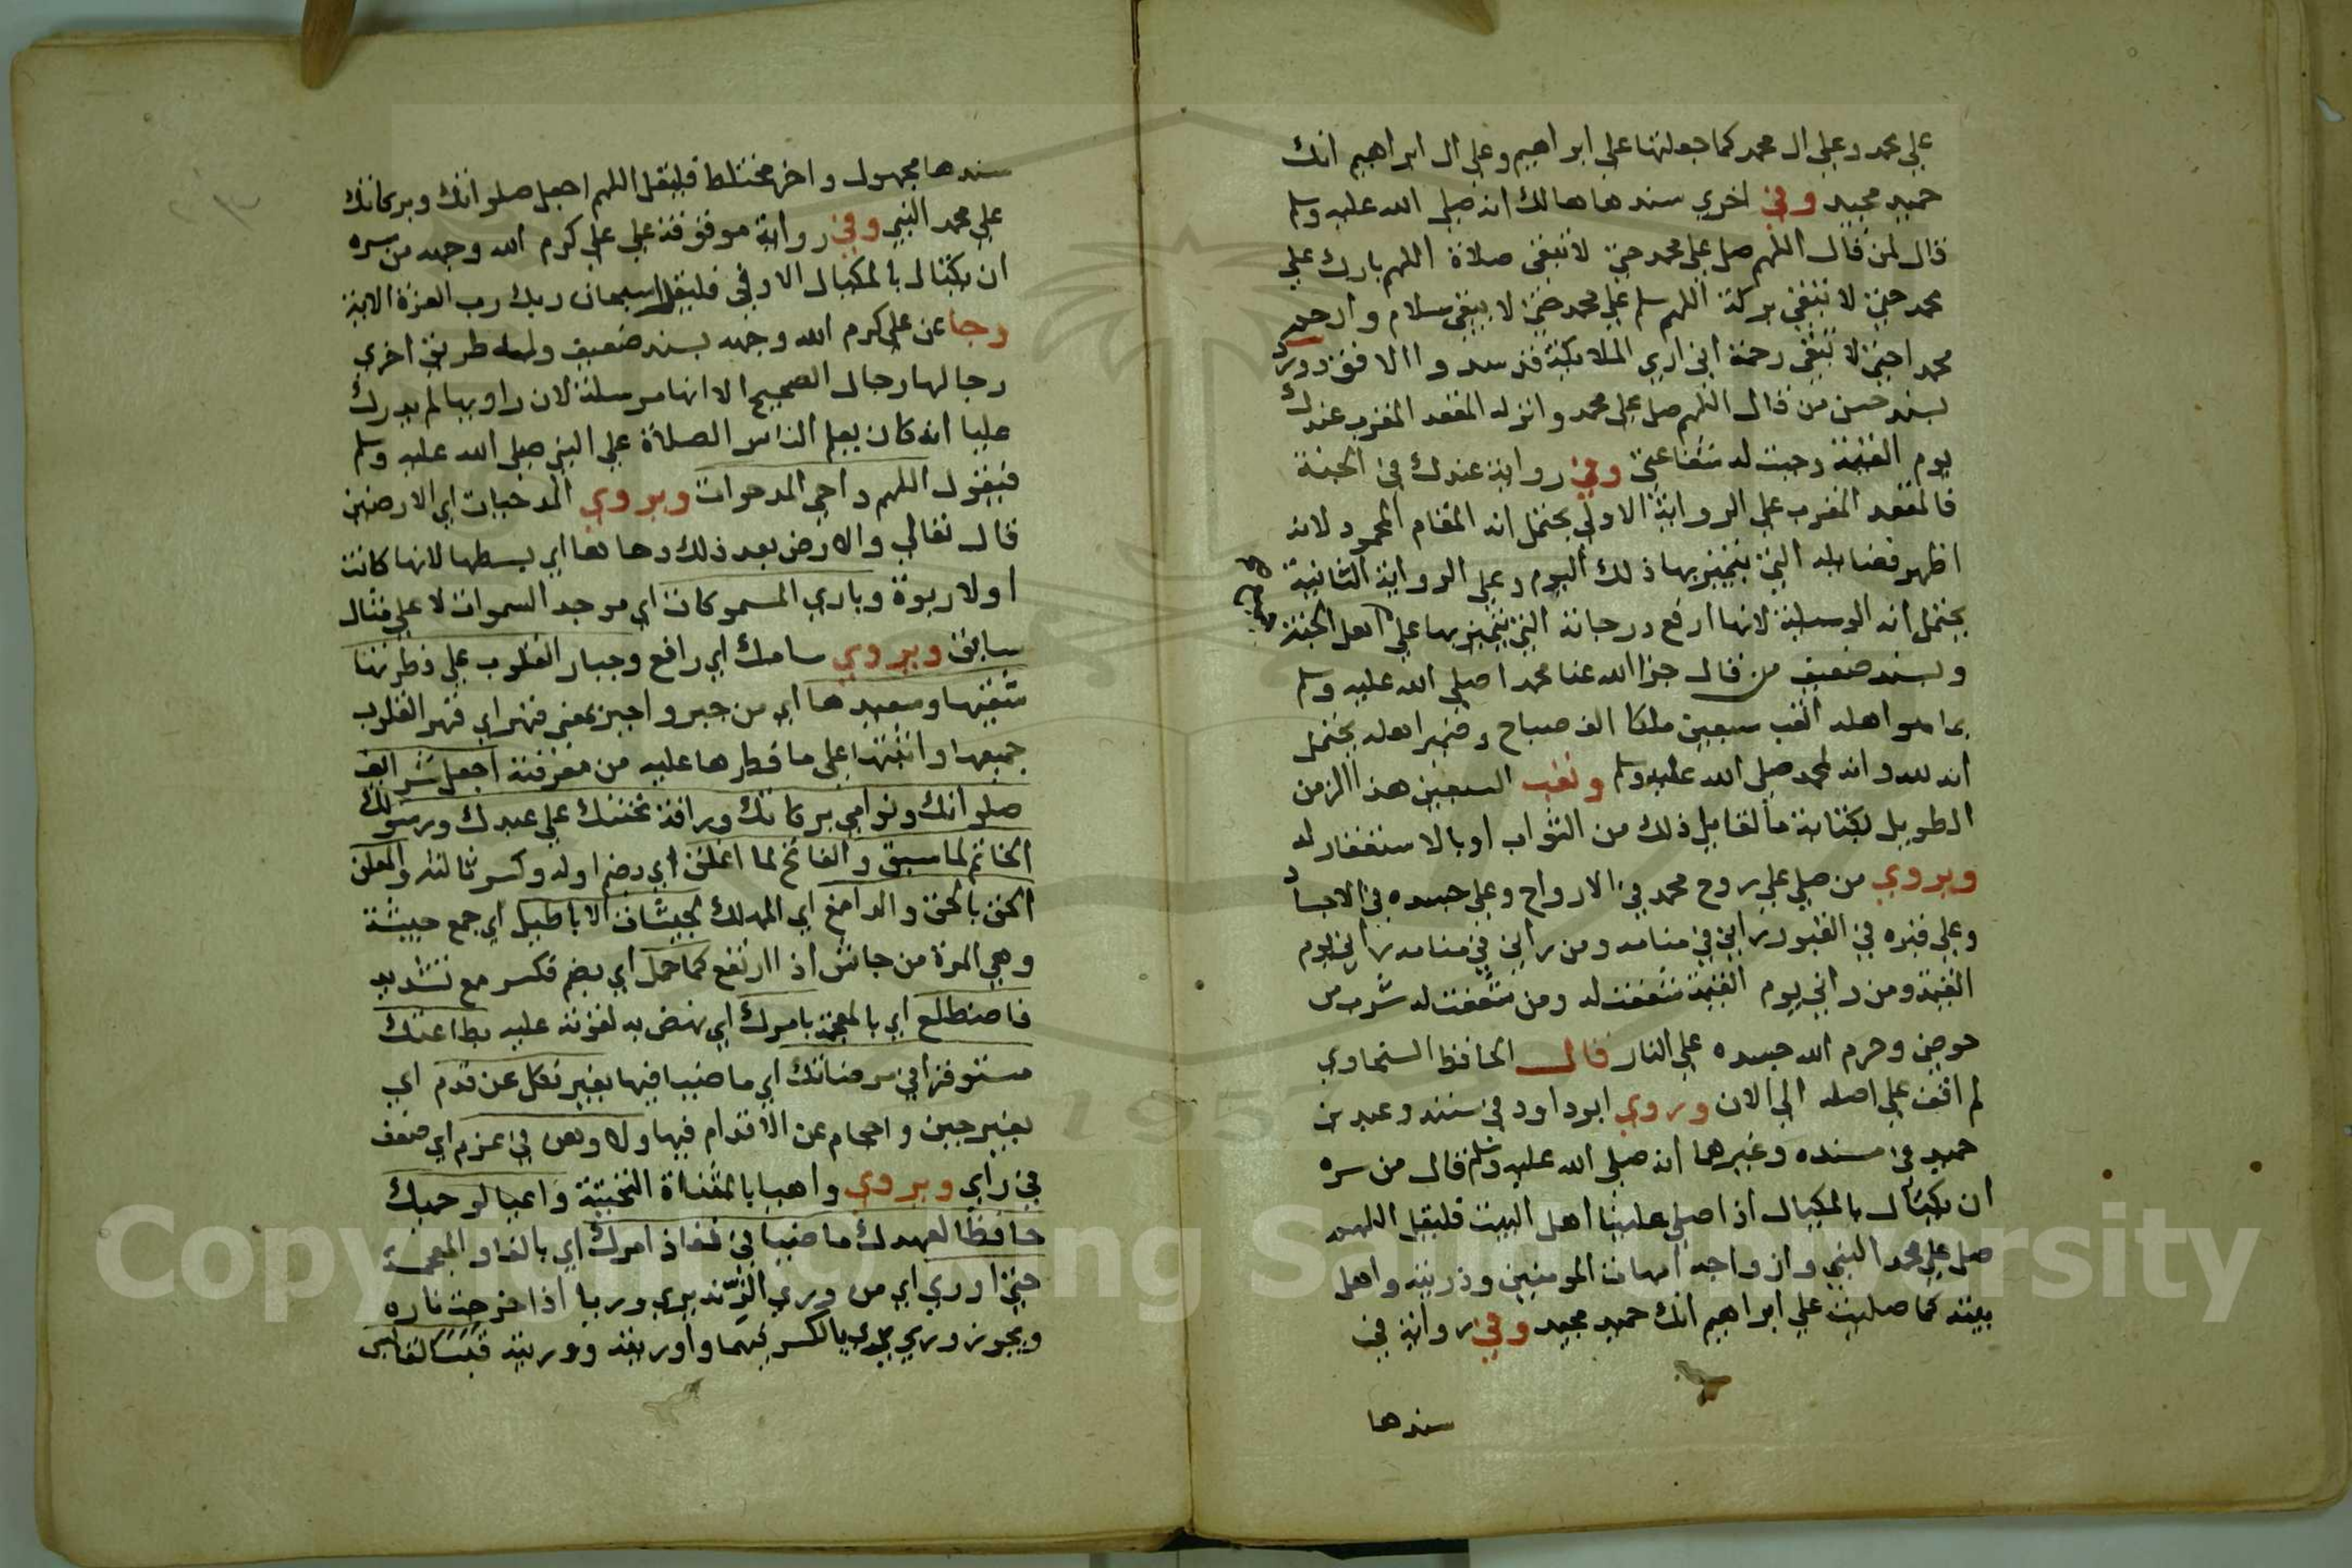 علي محمد وعلي ال محمد كما جعلتها علي ابراهيم وعلي ال ابراهيم انك
حميد مجيد وفي اخري سندها هالك انه صلي الله عليه وسلم
قال لمن قال اللهم صل علي محمد حتي لا تبقي صلاة اللهم بارك علي
محمد حتي لا تبقي بركة اللهم سلم علي محمد حتي لا يبقي سلام وارحم
محمدا حتي لا تبقي رحمة اني اري الملايكة قد سدوا الافق وورد
بسند حسن من قال اللهم صل علي محمد وانزله المقعد المقرب عندك
يوم القيمة وجبت له شفاعتي وفي رواية عندك في الجنة
فالمقعد المقرب علي الرواية الاولي يحتمل انه المقام المحمود لانه
اظهر فضايله التي يتميز بها ذلك اليوم وعلي الرواية الثانية
يحتمل انه الوسيلة لانها ارفع درجاته التي يتميز بها علي اهل الجنة
وبسند ضعيف من قال جزا الله عنا محمدا صلي الله عليه وسلم
بما هو اهله اتعب سبعين ملكا الف صباح وضمير اهله يحتمل
انه لله وانه لمحمد صلي الله عليه وسلم وتعب السبعين هذا الزمن
الطويل بكتابة ما لقايل ذلك من الثواب او بالاستغفار له
ويروي من صلي علي روح محمد في الارواح وعلي جسده في الاجساد
وعلي قبره في القبور راني في منامه ومن راني في منامه راني يوم
القيمة ومن راني يوم القيمة شفعت له ومن شفعت له شرب من
حوضي وحرم الله جسده علي النار قال الحافظ السخاوي
لم اقف علي اصله الي الان وروي ابو داود في سننه وعبد بن
حميد في مسنده وغيرها انه صلي الله عليه وسلم قال من سره
ان يكتال بالمكيال اذا صلي علينا اهل البيت فليقل اللهم
صل علي محمد النبي وازواجه امهات المومنين وذريته واهل
بيته كما صليت علي ابراهيم انك حميد مجيد وفي رواية في
سندها
سندها مجهول واخر مختلط فليقل اللهم اجعل صلواتك وبركاتك
علي محمد النبي وفي رواية موقوفة علي علي كرم الله وجهه من سره
ان يكتال بالمكيال الاوفي فليقل سبحان ربك رب العزة الاية
وجا عن علي كرم الله وجهه بسند ضعيف وله طريق اخري
رجالها رجال الصحيح الا انها مرسلة لان راويها لم يدرك
عليا انه كان يعلم الناس الصلاة علي النبي صلي الله عليه وسلم
فيقول اللهم داحي المدحوات ويروي المدحيات اي الارضين
قال تعالي والارض بعد ذلك دحاها اي بسطها لانها كانت
اولا ربوة وباري المسموكات اي موجد السموات لا علي مثال
سابق ويروي سامك اي رافع وجبار القلوب علي فطرتها
شقيها وسعيدها اي من جبر واجبر بمعني قهر اي قهر القلوب
جميعها واثبتها علي ما فطرها عليه من معرفته اجعل شرائف
صلواتك ونوامي بركاتك ورافة تحننك علي عبدك ورسولك
الخاتم لما سبق والفاتح لما اغلق اي بضم اوله وكسر ثالثه والمعلن
الحق بالحق والدامغ اي المهلك لجيشات الاباطيل اي جمع جيشة
وهي المرة من جاش اذا ارتفع كما حمل اي بضم فكسر مع تشديد
فاضطلع اي بالمعجمة بامرك اي نهض به لقوته عليه بطاعتك
مستوفزا في مرضاتك اي ماضيا فيها بغير نكل عن قدم اي
بغير جبن واحجام عن الاقدام فيها ولا وهن في عزم اي ضعف
في راي ويروي واهيا بالمثناة التحتية واعيا لوحيك
حافظا لعهدك ماضيا في نفاذ امرك اي بالفا والمعجمة
حتي اوري اي من وري الزند يري وريا اذا خرجت ناره
ويجوز وري يري بالكسر فيهما واوريته ووريته قبسا لقابس